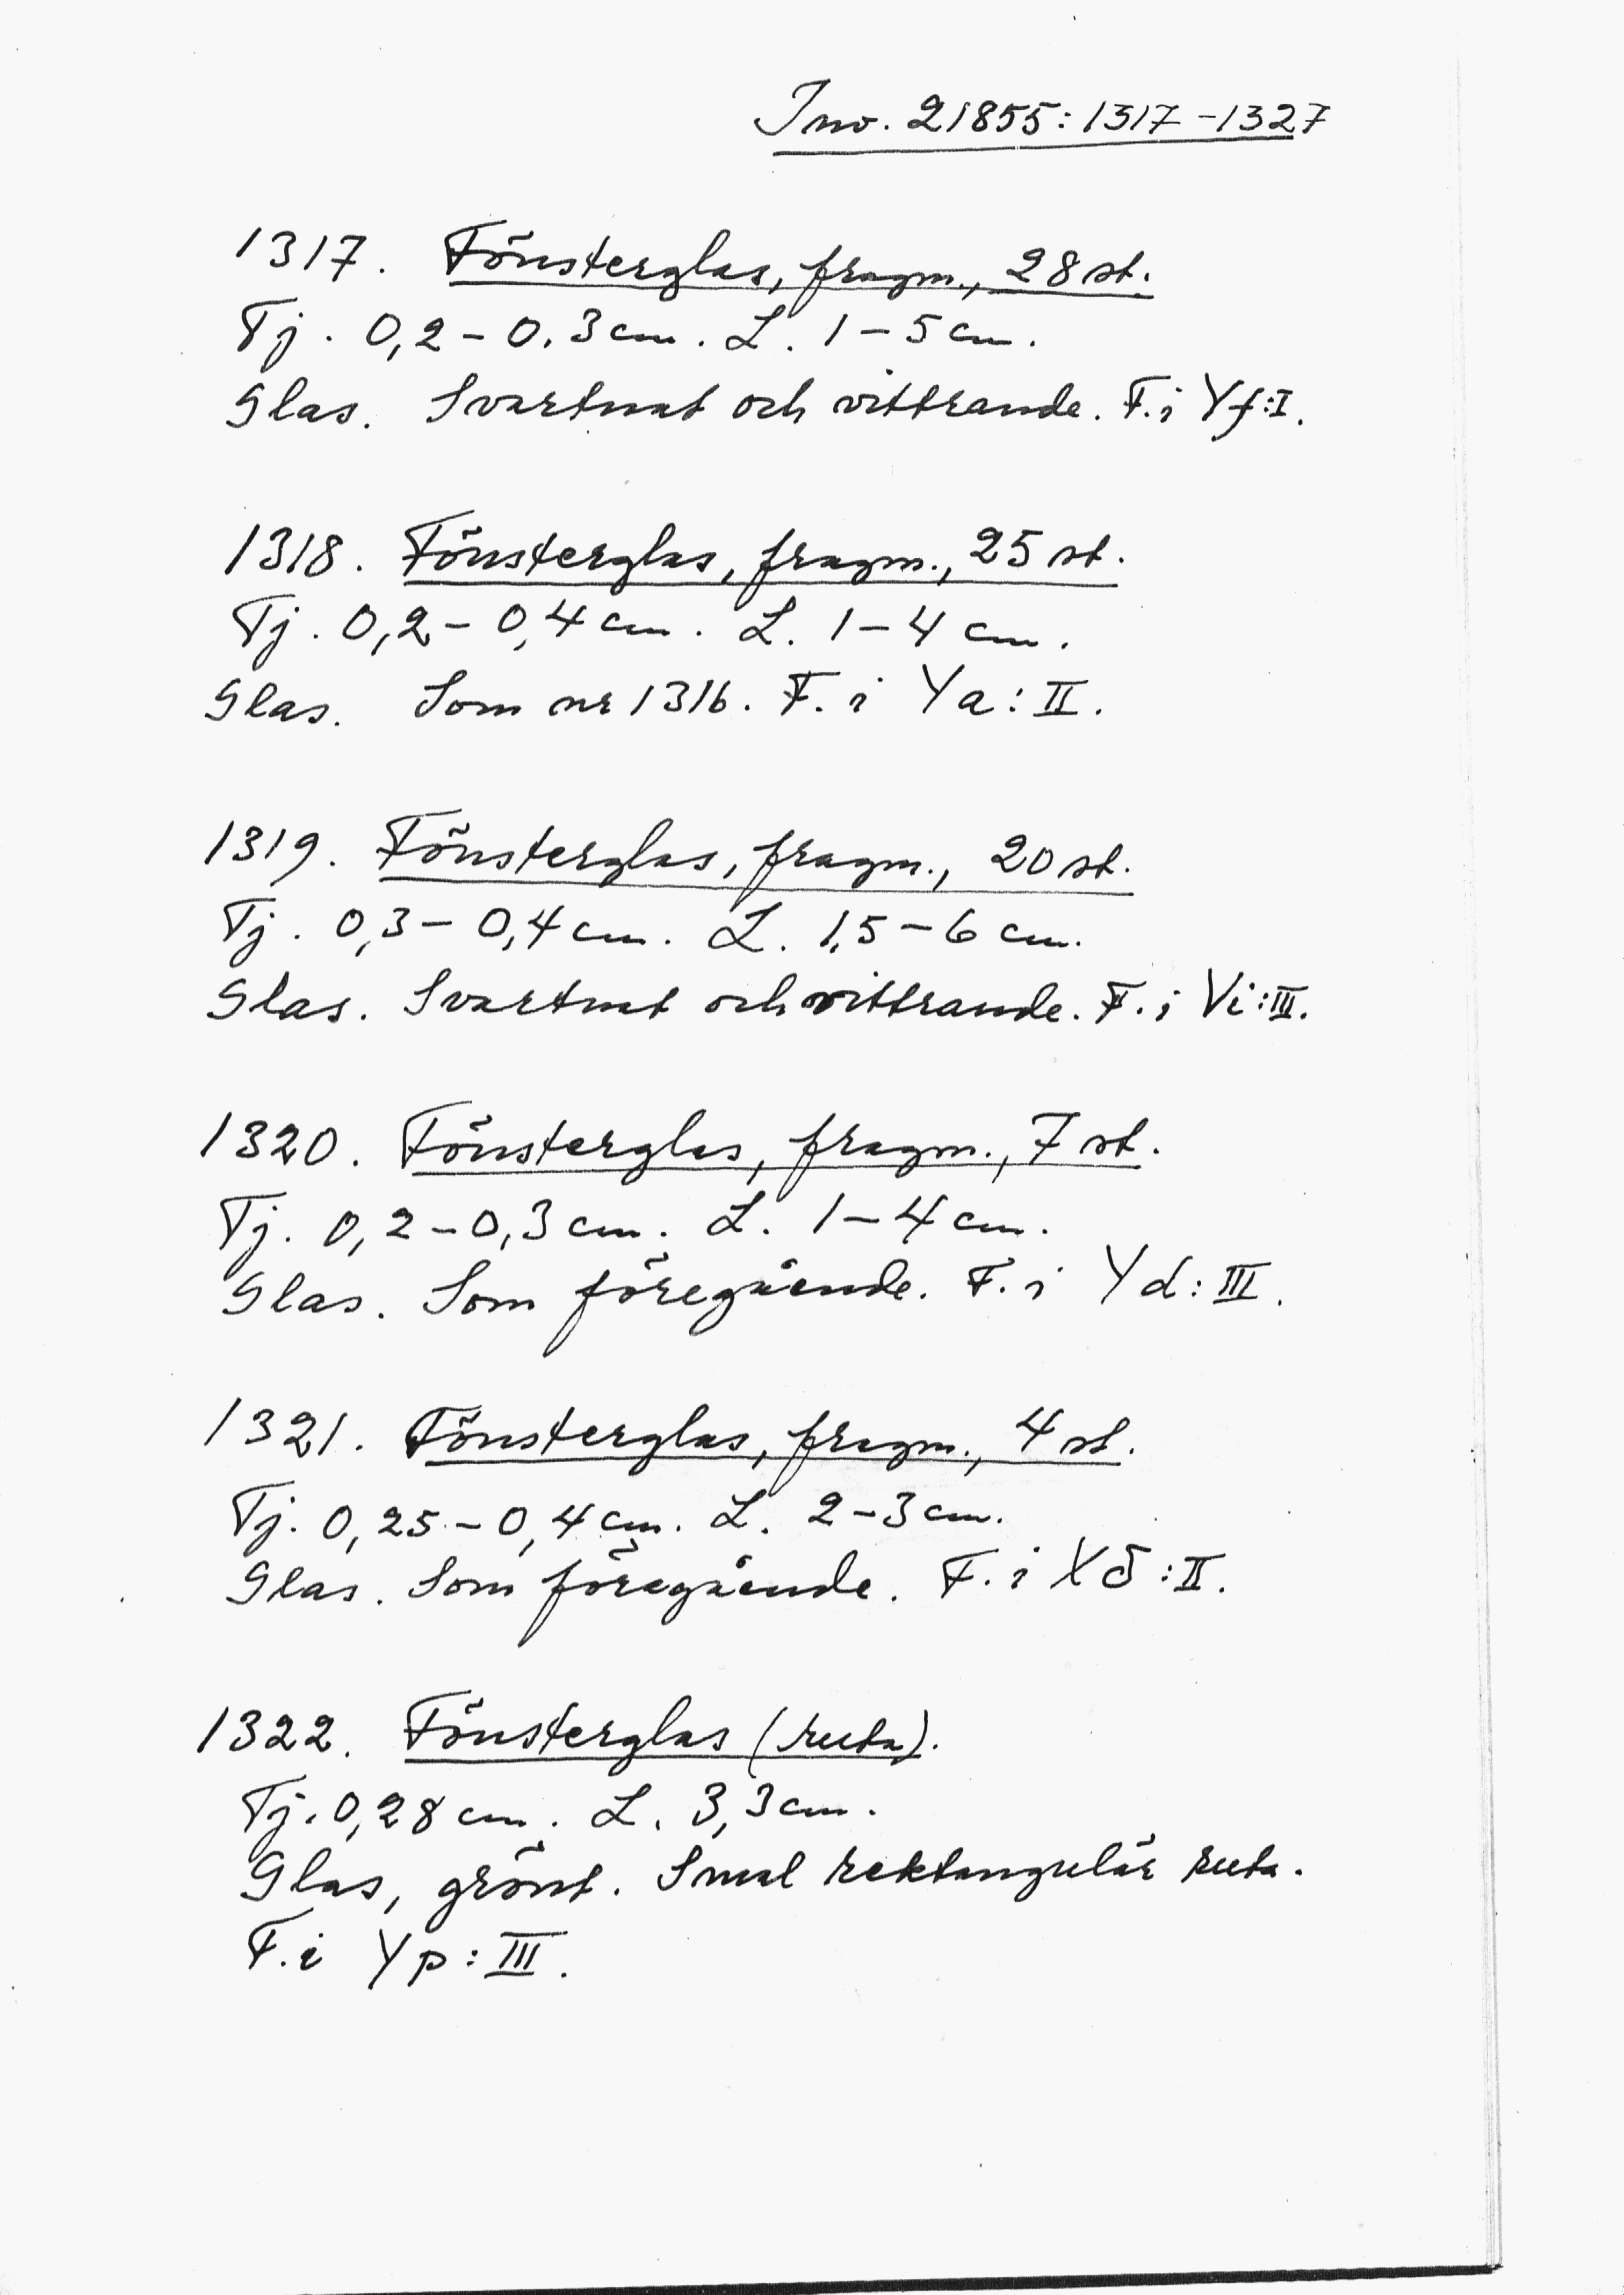 Inv. 21855:1317-1327
1317. Fönsterglas, fragm., 28 st.
Tj. 0,2-0,3 cm. L. 1-5 cm.
Glas. Svartnat och vittrande. F. i Yf:I.
1318. Fönsterglas, fragm., 25 st.
Tj. 0,2-0,4 cm. L. 1-4 cm.
Glas. Som nr 1316. F. i Ya:II.
1319. Fönsterglas, fragm., 20 st.
Tj. 0,3-0,4 cm. L. 1,5-6 cm.
Glas. Svartnat och vittrande. F. i Vi:III.
1320. Fönsterglas, fragm., 7 st.
Tj. 0,2-0,3 cm. L. 1-4 cm.
Glas. Som föregående. F. i Yd:III.
1321. Fönsterglas, fragm., 4 st.
Tj. 0,25-0,4 cm. L. 2-3 cm.
Glas. Som föregående. F. i Xδ:II.
1322. Fönsterglas (ruta).
Tj. 0,28 cm. L. 3,3 cm.
Glas, grönt. Smal rektangulär ruta.
F. i Yp:III.